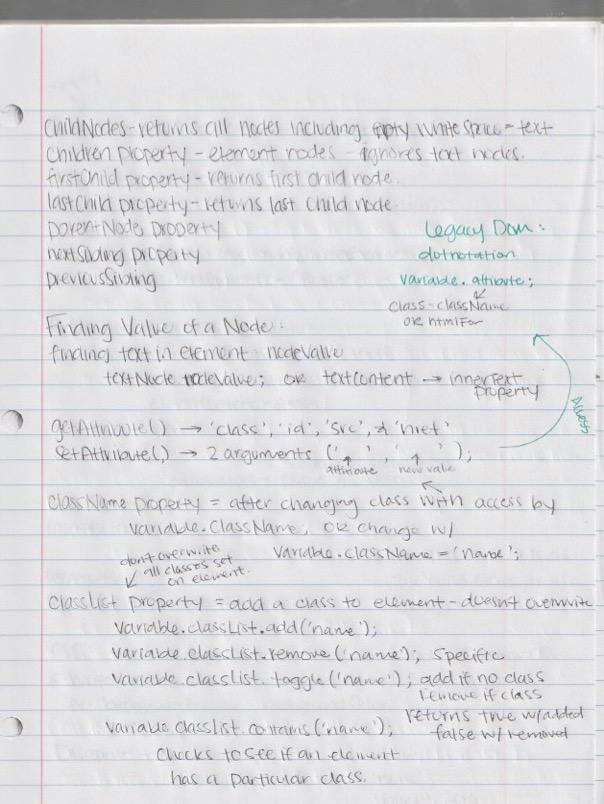 childNodes - returns all nodes including empty white space = text
children property - element nodes - ignores text nodes.
firstChild property - returns first child node.
lastChild property - returns last child node
parentNode property
nextSibling property
previousSibling
Legacy Dom:
dotnotation
variable.attribute;
class - className
OR htmlFor
Finding Value of a Node:
finding text in element nodeValue
textNode.nodeValue; OR textContent → innerText
property
getAttribute() → 'class', 'id', 'src', & 'href'
setAttribute() → 2 arguments (' ', ' ');
attribute new value
Access
className property = after changing class with access by
variable.className; OR change w/
variable.className = 'name';
don't overwrite
all classes set
on element.
classList property = add a class to element - doesn't overwrite
variable.classList.add('name');
variable.classList.remove('name'); specific
variable.classList.toggle('name'); add if no class
remove if class
returns true w/added
false w/ removed
variable.classlist.contains('name');
checks to see if an element
has a particular class.